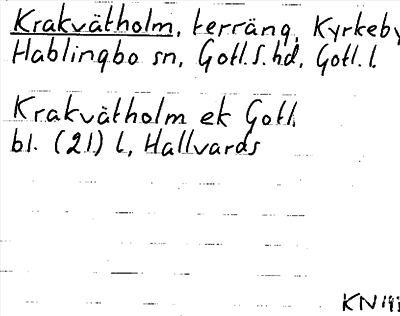 Krakvätholm, terräng, Kyrkeby
Hablingbo sn, Gotl.S.hd, Gotl. l.
Krakvätholm ek Gotl.
bl. (21) l, Hallvards
KN